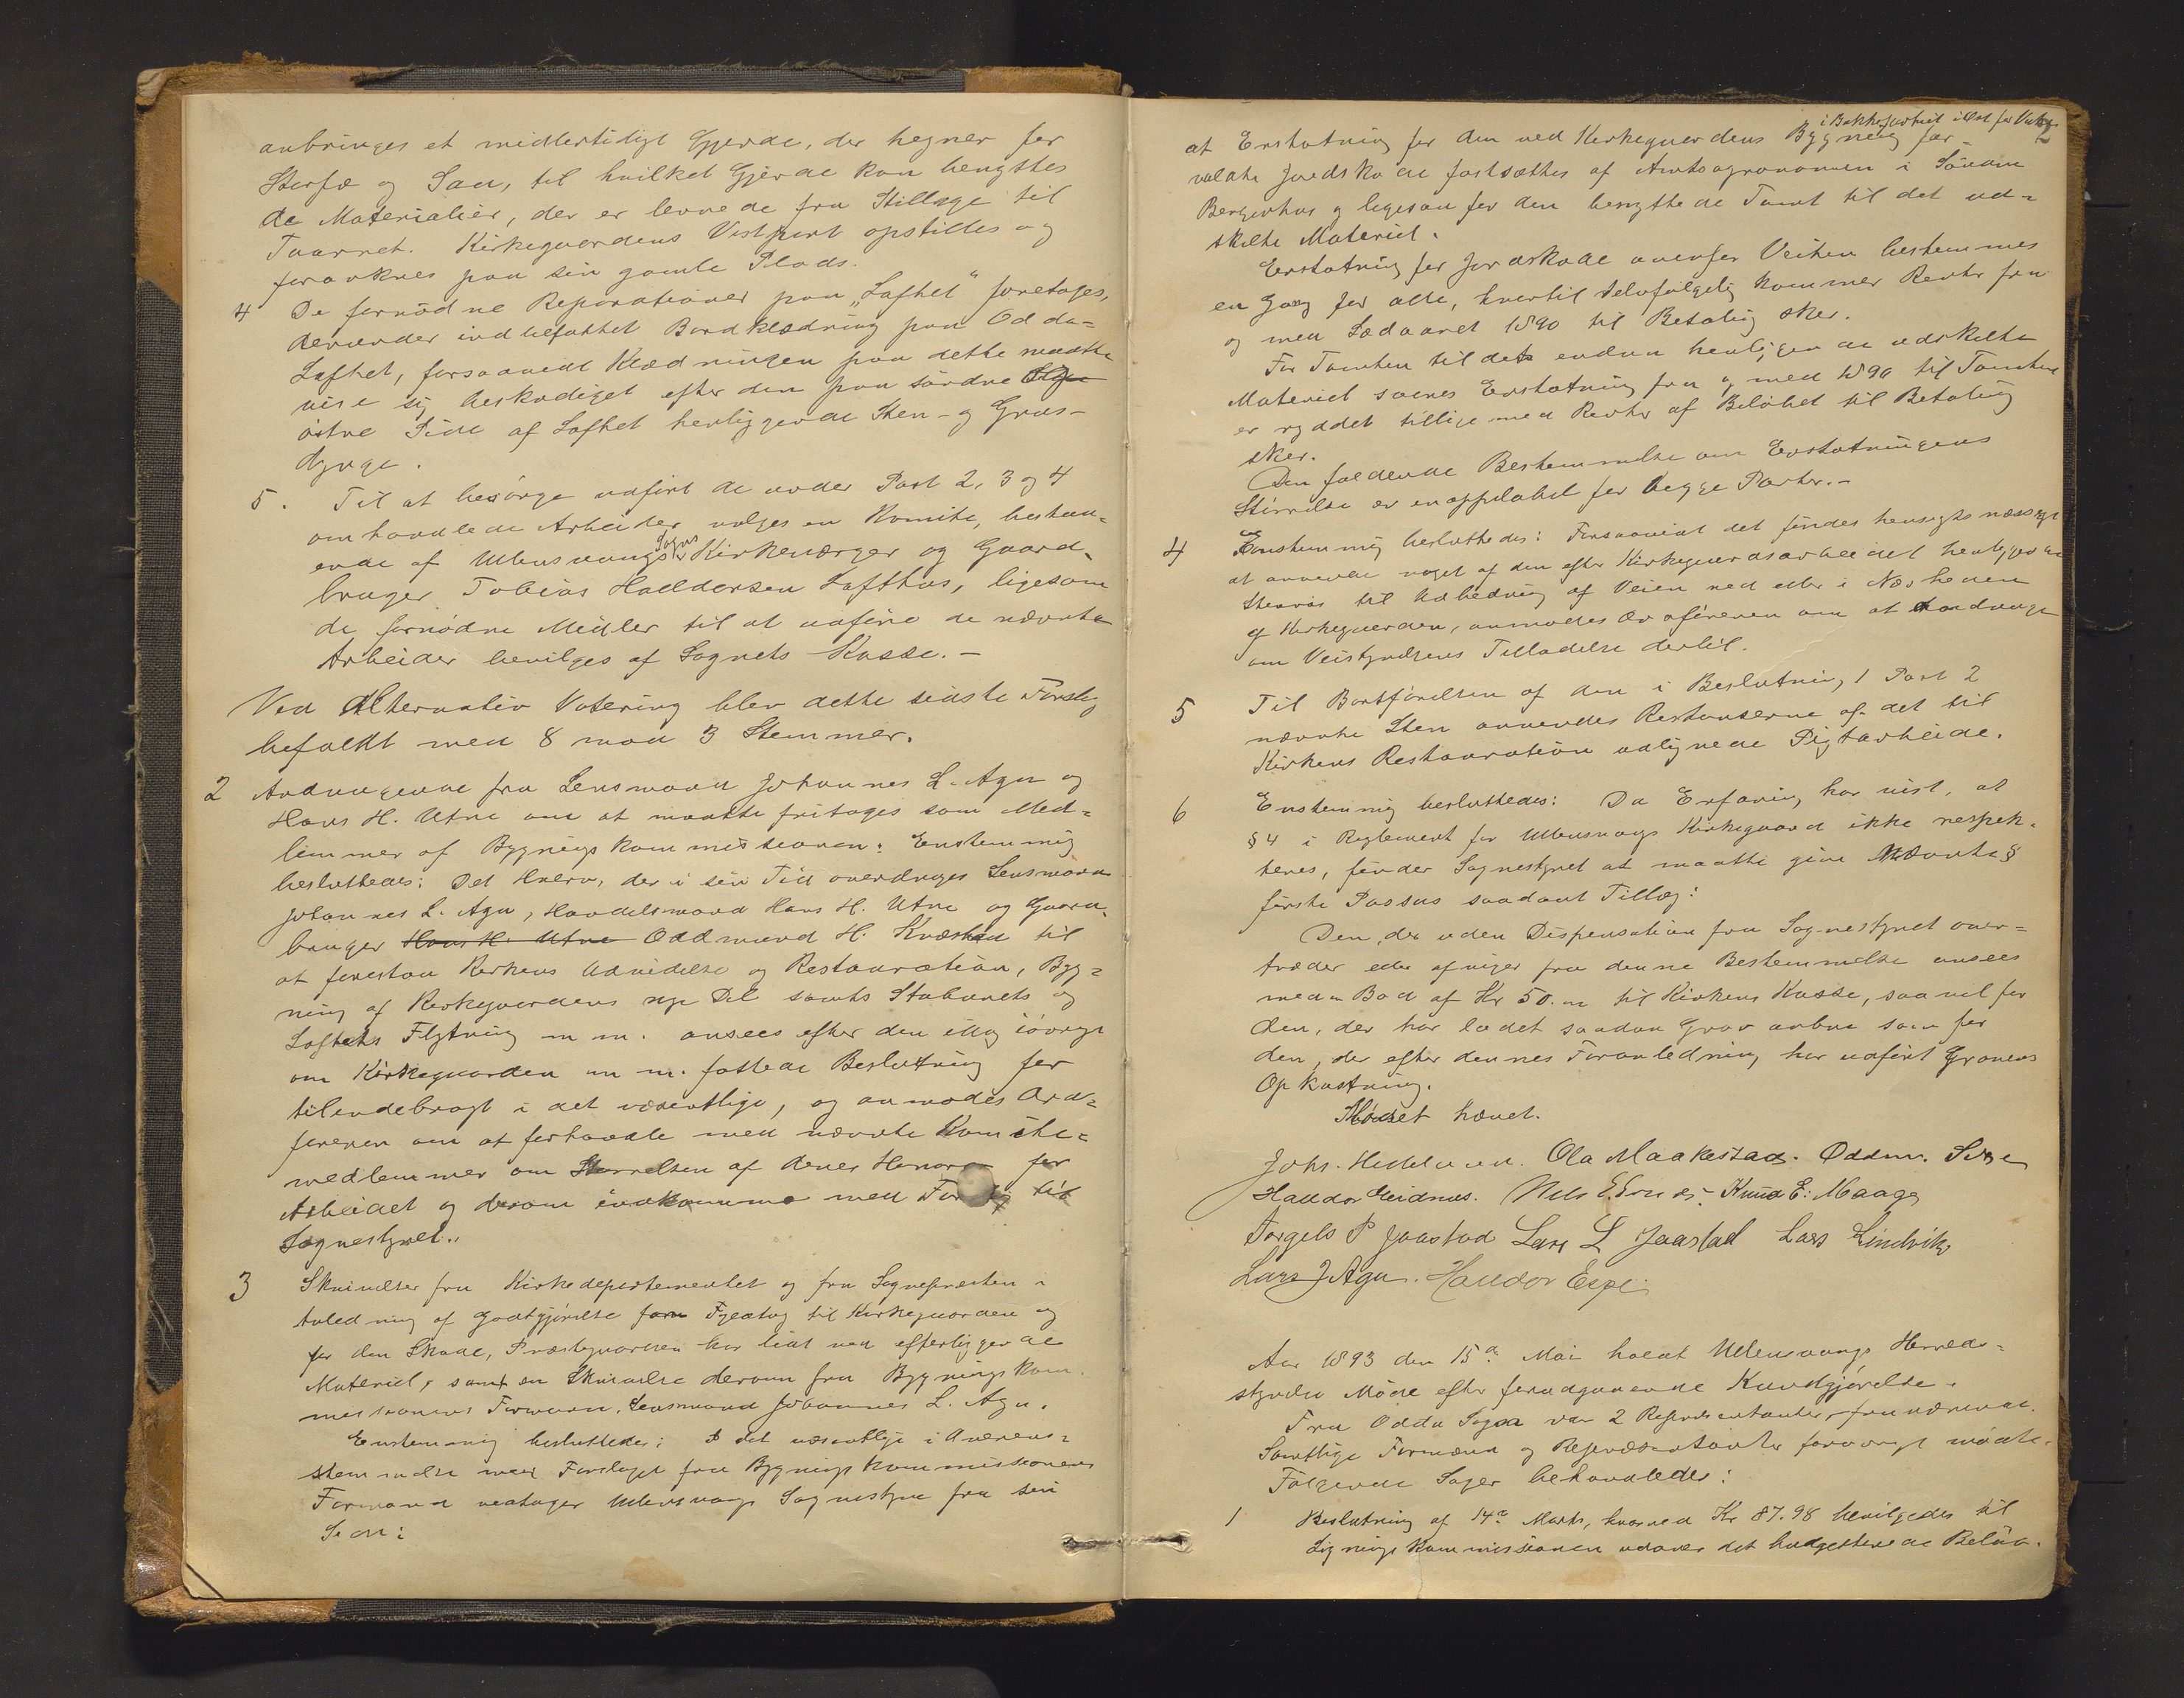 anbringes et midlertidigt Gjerde, der hegner for
Storfæ og Sau, til hvilket Gjerde kan benyttes
de Materialier, der er levnede fra Stillage til
Taarnet. Kirkegaardens Vestport opstilles og
forankres paa sin gamle Plads.
4 De fornödne Reparationer paa "Lofthet" foretages,
derunder indbefattet Bordklædning paa Odda-
Lofthet, forsaavidt Klædningen paa dette maatte
vise sig beskadiget efter den paa söndre
östre Side af Lofthet henliggende Sten- og Grus-
dynge.
5. Til at besörge udfört de under Post 2, 3 og 4
omhandlede Arbeider vælges en Komite, bestaa-
ende af Ullensvangs Sogns Kirkeværger og Gaard-
bruger Tobias Halldorsen Lofthus, ligesom
de fornödne Midler til at udföre de nævnte
Arbeider bevilges af Sognets Kasse. —
Ved alternativ Votering blev dette sidste Forslag
befaldt med 8 mod 3 Stemmer.
2 Andragende fra Lensmand Johannes L. Aga og
Hans H. Utne om at maatte fritages som Med-
lemmer af Bygningskommissionen: Enstemmig
besluttedes: Det Hverv, der i sin Tid overdroges Lensmand
Johannes L. Aga, Handelsmand Hans H. Utne og Gaard-
bruger Hans H. Utne Oddmund H. Kvæstad til
at forestaa Kirkens Udvidelse og Restauration, Byg-
ning af Kirkegaardens nye Del samt Staburets og
Loftets Flytning m m. ansees efter den idag iövrigt
om Kirkegaarden m m. fattede Beslutning for
tilendebragt i det væsentlige, og anmodes Ord-
föreren om at forhandle med nævnte Komite-
medlemmer om Störrelsen af deres Honorar for
Arbeidet og derom indkomme med Forslag til
Sognestyret.
3 Skrivelser fra Kirkedepartementet og fra Sognepresten i
Anledning af Godtgjörelse for Fyldtag til Kirkegaarden og
for den Skade, Præstegaarden har lidt ved efterliggende
Materiel, samt en Skrivelse derom fra Bygningskom-
missionens Formann, Lensmand Johannes L. Aga.
Enstemmig besluttedes: I det væsentlige i Overens-
stemmelse med Forslaget fra Bygningskommissionens
Formand vedtager Ullensvangs Sognestyre fra sin
Side:
2
i Bakkejordet i Öst for Veien
at Erstatning for den ved Kirkegaardens Bygning for-
voldte Jordskade fastsættes af Amtsagronomen i Söndre
Bergenhus og ligesaa for den benyttede Tomt til det ud-
skilte Materiel.
Erstatning for Jordskade ovenfor Veien bestemmes
en Gang for alle, hvortil selvfölgelig kommer Renter fra
og med Sædaaret 1890 til Betaling sker.
For Tomten til det endnu henliggende udskilte
Materiel svares Erstatning fra og med 1890 til Tomten
er ryddet tillige med Renter af Belöbet til Betaling
sker.
Den faldende Bestemmelse om Erstatningens
Störrelse er inappelabel for begge Parter. —
4 Enstemmig besluttedes: Forsaavidt det findes hensigtsmæssigt
at anvende noget af den efter Kirkegaardsarbeidet henliggende
Stenrös til Udbedring af Veien ved eller i Nærheden
af Kirkegaarden, anmodes Ordföreren om at andrage
om Veistyrelsens Tilladelse dertil.
5 Til Bortförelsen af den i Beslutning 1 Post 2
nævnte Sten anvendes Restanserne af det til
Kirkens Restauration udlignede Pligtarbeide.
6 Enstemmig besluttedes: Da Erfaring har vist, at
§ 4 i Reglement for Ullensvangs Kirkegaard ikke respek-
teres, finder Sognestyret at maatte give Nævnte §
förste Passus saadant Tillæg:
Den, der uden Dispensation fra Sognestyret over-
træder eller afviger fra denne Bestemmelse ansees
med en Bod af Kr 50.00 til Kirkens Kasse, saavel for
den, der har ladet saadan Grav aabne som for
den, der efter dennes Foranledning har udfört Gravens
Opkastning.
Mödet hævet.
Johs. Ola Maakestad. Oddm.
Halldor Eidnes. Nils E. Knud E. Maage
Torgels P Jaastad Lars L Jaastad Lars Lindvik
Lars J Aga. Halldor Espe.
Aar 1893 den 15de Mai holdt Ullensvangs Herreds-
styrelse Möde efter forudgaaende Kundgjörelse.
Fra Odda Sogn var 2 Repræsentanter fraværende.
Samtlige Formænd og Repræsentanter forövrigt mödte.
Fölgende Sager behandledes:
1 Beslutning af 14de Marts, hvorved Kr 87.98 bevilgedes til
Ligningskommissionen udover det budgetterede Belöb.